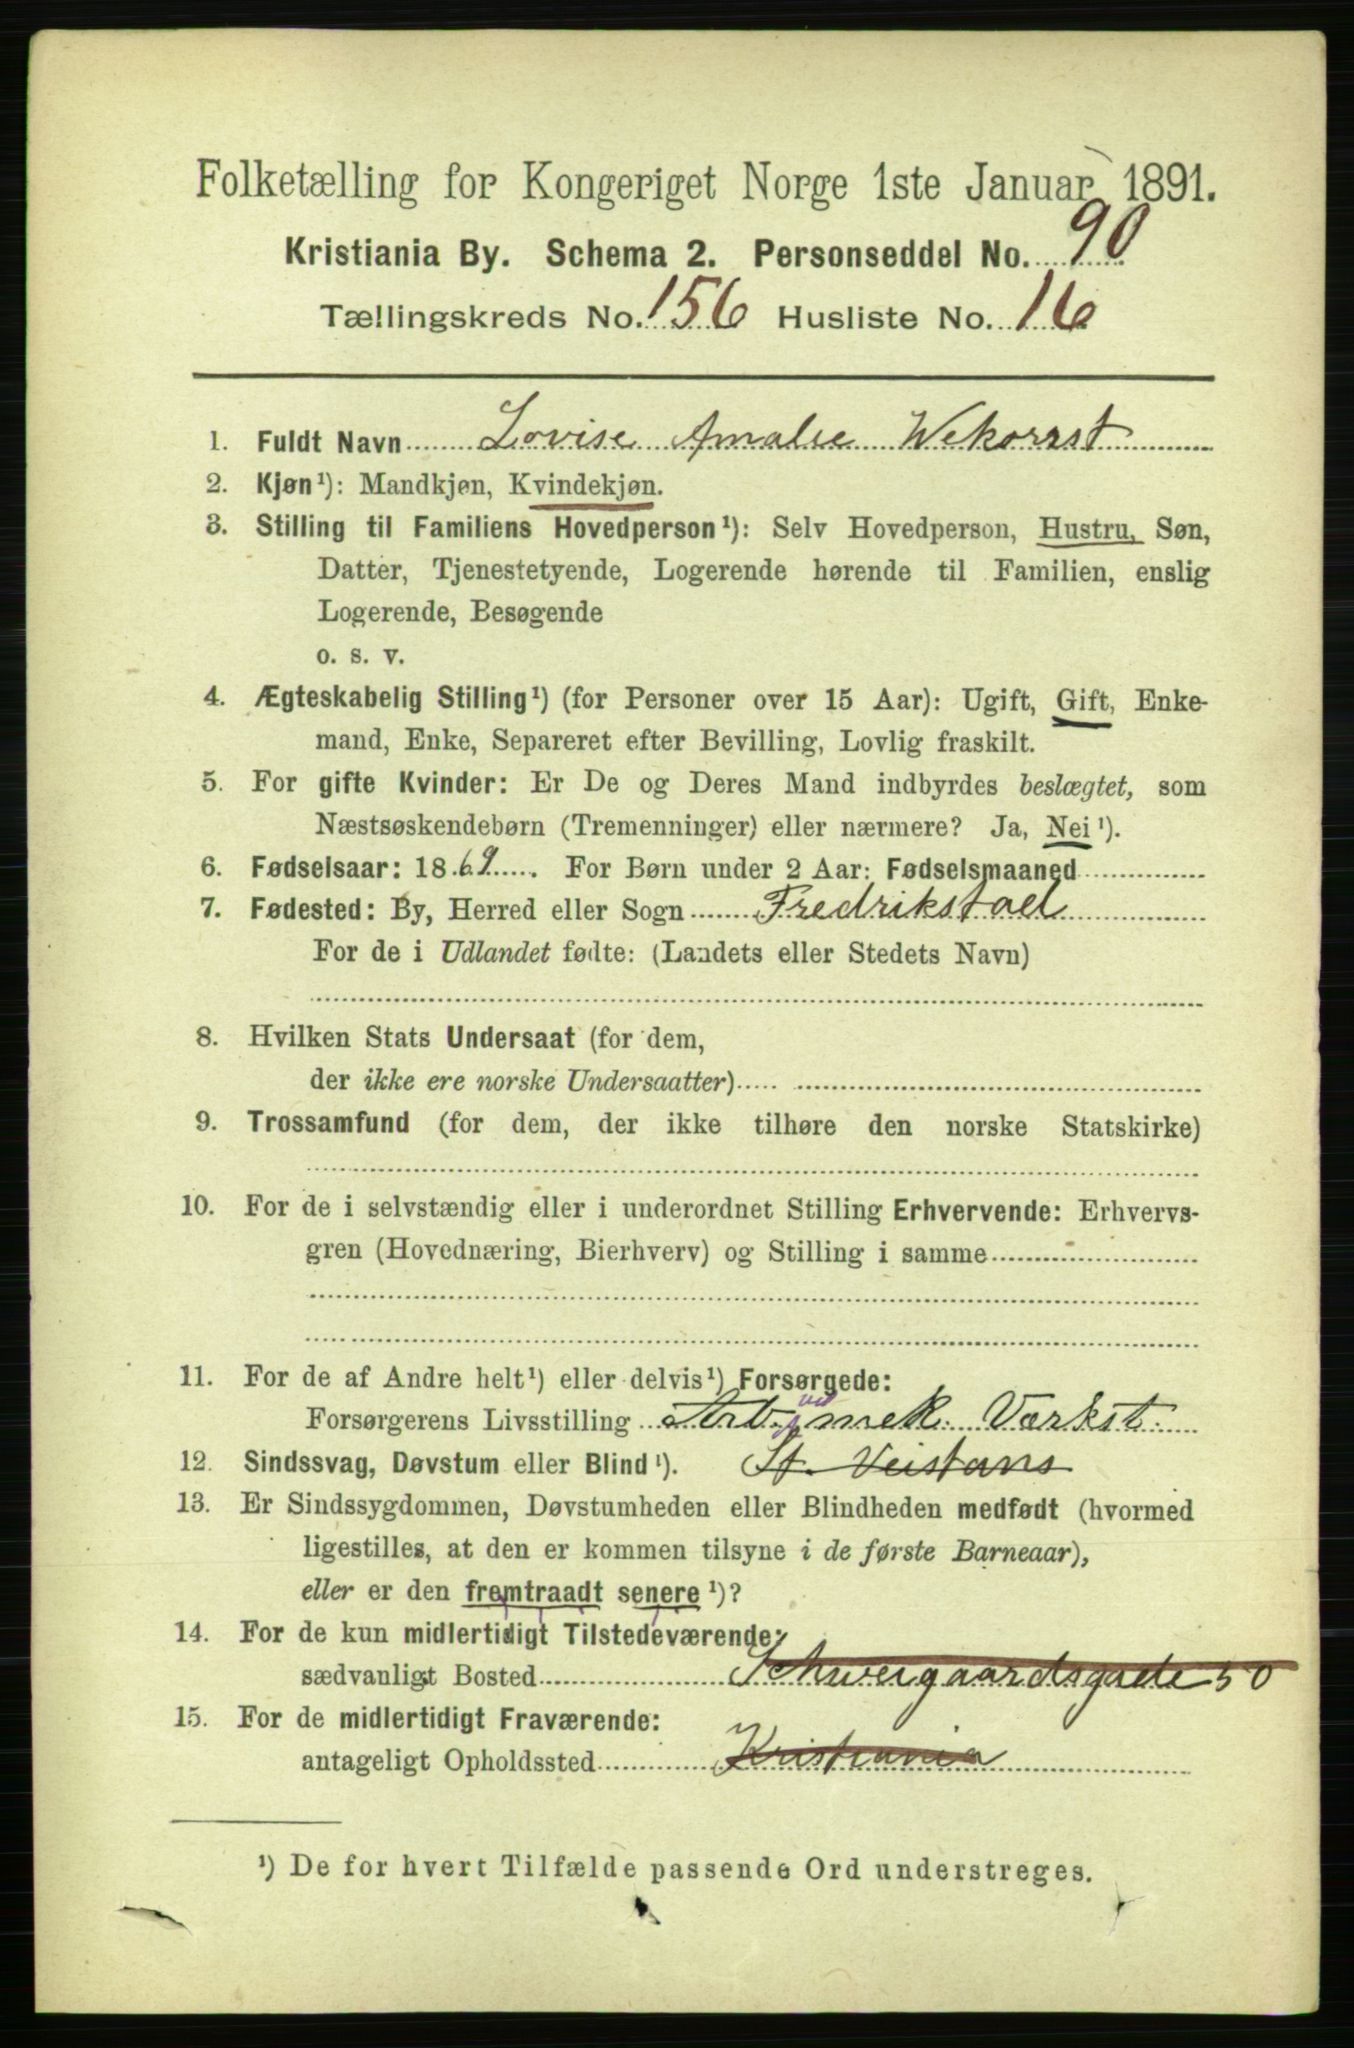 Folketælling for Kongeriget Norge 1ste Januar 1891.
Kristiania By. Schema 2. Personseddel No. 90
Tællingskreds No. 156 Husliste No. 16
1. Fuldt Navn Lovise Amalie Wekorrst
2. Kjøn¹): Mandkjøn, Kvindekjøn.
3. Stilling til Familiens Hovedperson¹): Selv Hovedperson, Hustru, Søn,
Datter, Tjenestetyende, Logerende hørende til Familien, enslig
Logerende, Besøgende
o. s. v.
4. Ægteskabelig Stilling¹) (for Personer over 15 Aar): Ugift, Gift, Enke-
mand, Enke, Separeret efter Bevilling, Lovlig fraskilt.
5. For gifte Kvinder: Er De og Deres Mand indbyrdes beslægtet, som
Næstsøskendebørn (Tremenninger) eller nærmere? Ja, Nei¹).
6. Fødselsaar: 1869. For Børn under 2 Aar: Fødselsmaaned
7. Fødested: By, Herred eller Sogn Fredrikstad
For de i Udlandet fødte: (Landets eller Stedets Navn)
8. Hvilken Stats Undersaat (for dem,
der ikke ere norske Undersaatter)
9. Trossamfund (for dem, der ikke tilhøre den norske Statskirke)
10. For de i selvstændig eller i underordnet Stilling Erhvervende: Erhvervs-
gren (Hovednæring, Bierhverv) og Stilling i samme
11. For de af Andre helt¹) eller delvis¹) Forsørgede:
Forsørgerens Livsstilling Arb. ved mek. Værkst.
12. Sindssvag, Døvstum eller Blind¹). St. Veistans
13. Er Sindssygdommen, Døvstumheden eller Blindheden medfødt (hvormed
ligestilles, at den er kommen tilsyne i de første Barneaar),
eller er den fremtraadt senere¹)?
14. For de kun midlertidigt Tilstedeværende:
sædvanligt Bosted Schweigaardsgade 50
15. For de midlertidigt Fraværende:
antageligt Opholdssted Kristiania
¹) De for hvert Tilfælde passende Ord understreges.